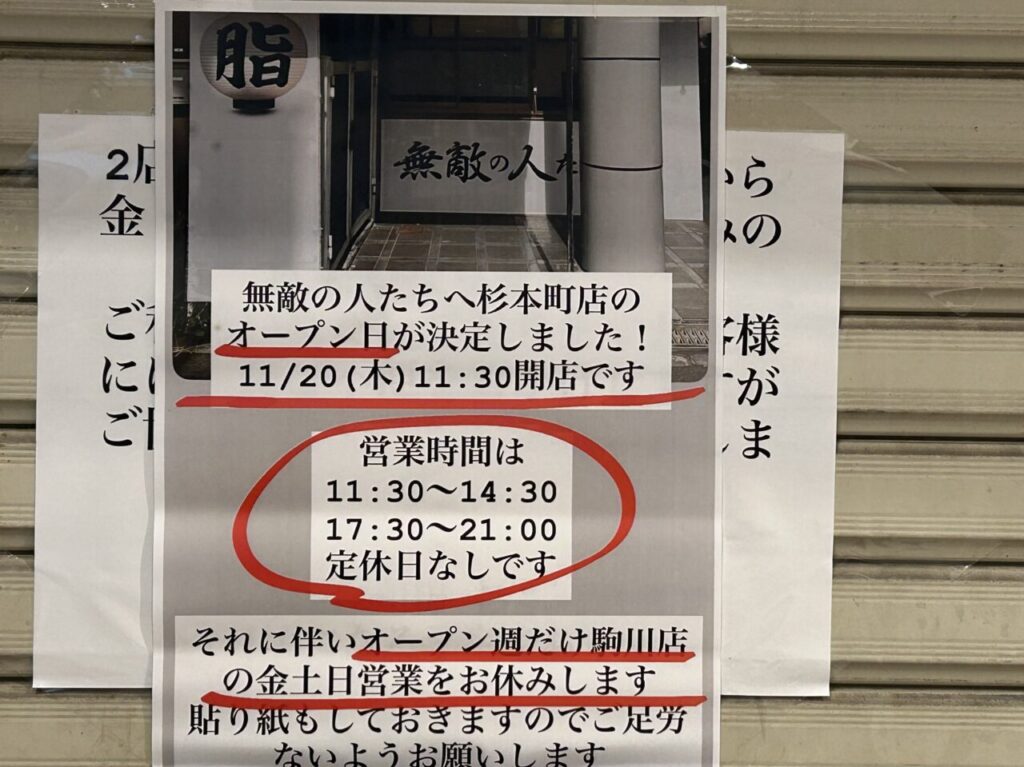 脂
無敵の人た
無敵の人たちへ杉本町店の
オープン日が決定しました!
11/20(木)11:30開店です
営業時間は
11:30〜14:30
17:30〜21:00
定休日なしです
それに伴いオープン週だけ駒川店
の金土日営業をお休みします
貼り紙もしておきますのでご足労
ないようお願いします
2店
金
ご
に
ご
から
みの
客様
すが
しま